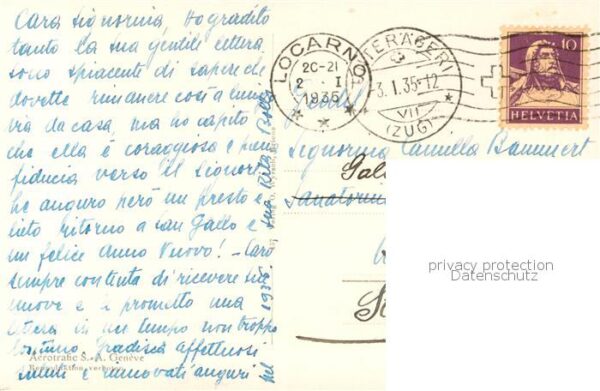 Cara Signorina, Ho gradito
tanto la sua gentile lettera
sono spiacente di sapere che
dovette rimanere così a lungo
via da casa, ma ho capito
che ella è coraggiosa e piena
fiducia verso il Signore
Le auguro però un presto e
lieto ritorno a San Gallo e
un felice Anno Nuovo! - Sarò
sempre contenta di ricevere sue
nuove e Le prometto una
lettera in un tempo non troppo
lontano. Gradisca affettuosi
saluti e rinnovati auguri
nel 1935. sua Rita
Aérotrafic S.-A. Genève
Reproduktion verboten
LOCARNO
20-21
2. I
1935
UNTERÄGERI
3. I. 35-12
VII
(ZUG)
10
HELVETIA
Signorina Camilla Bammert
Sanatorium
privacy protection
Datenschutz